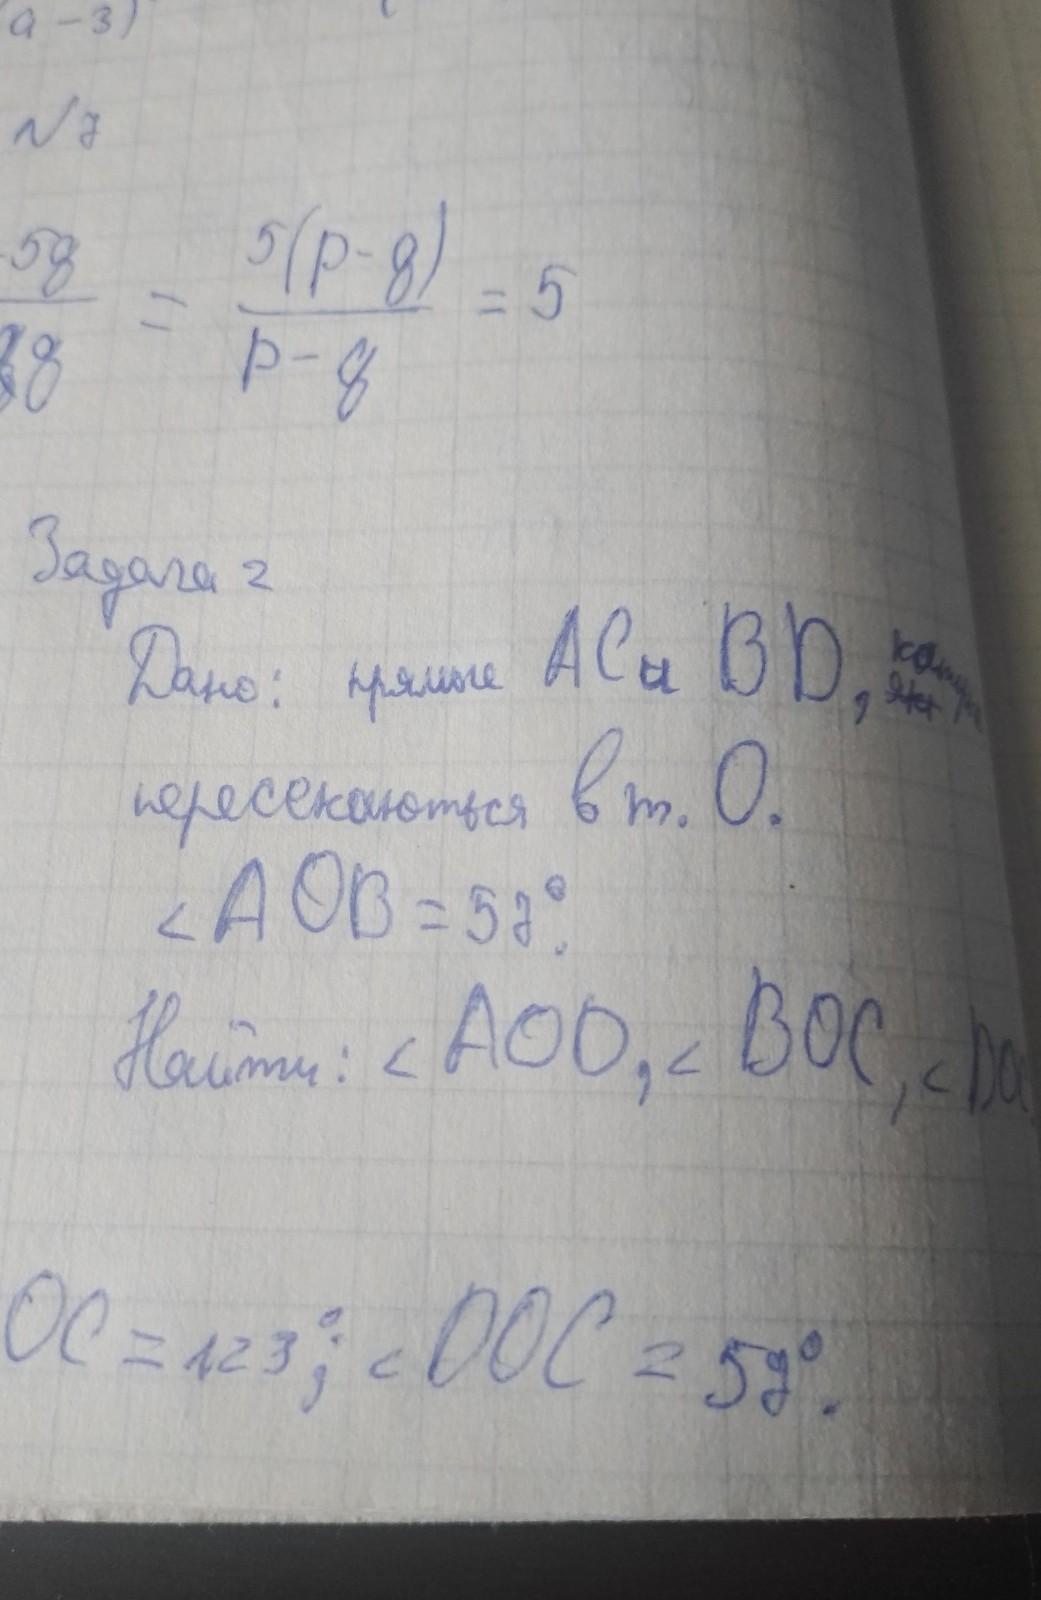 (a-3)
№7
-5q/q = 5(p-q)/p-q = 5
Задача 2
Дано: прямые AC и BD,
пересекаються в т. O.
<AOB = 57°.
Найти: <AOD, <BOC, <DOC
OC = 123°; <DOC = 57°.